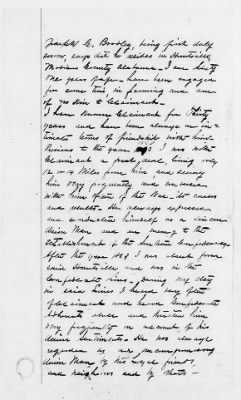 Joseph C. Bradley, being first duly
sworn, says that he resides in Huntsville
Madison County Alabama. I am sixty
one years of age. have been engaged
for some time, in farming and am
of no kin to Claimant.
I have known Claimant for Thirty
years and have been always on in-
timate terms of friendship with him.
Previous to the year I was with
Claimant a great deal, living only
12 or 14 miles from him and
him very frequently and conversed
with him often of the War, its causes
and results. He always expressed
and conducted himself as a
Union Man and an enemy to the
establishment of the Southern Confederacy
After the year 1862 I was absent from
said Huntsville and was in the
Confederate lines. During my stay
in said lines I heard very often
of Claimant and heard Confederate
abuse and threaten him
very frequently on account of his
Union Sentiments. He was always
regarded as an uncompromising
Union Man by the loyal friends
and neighbors and by